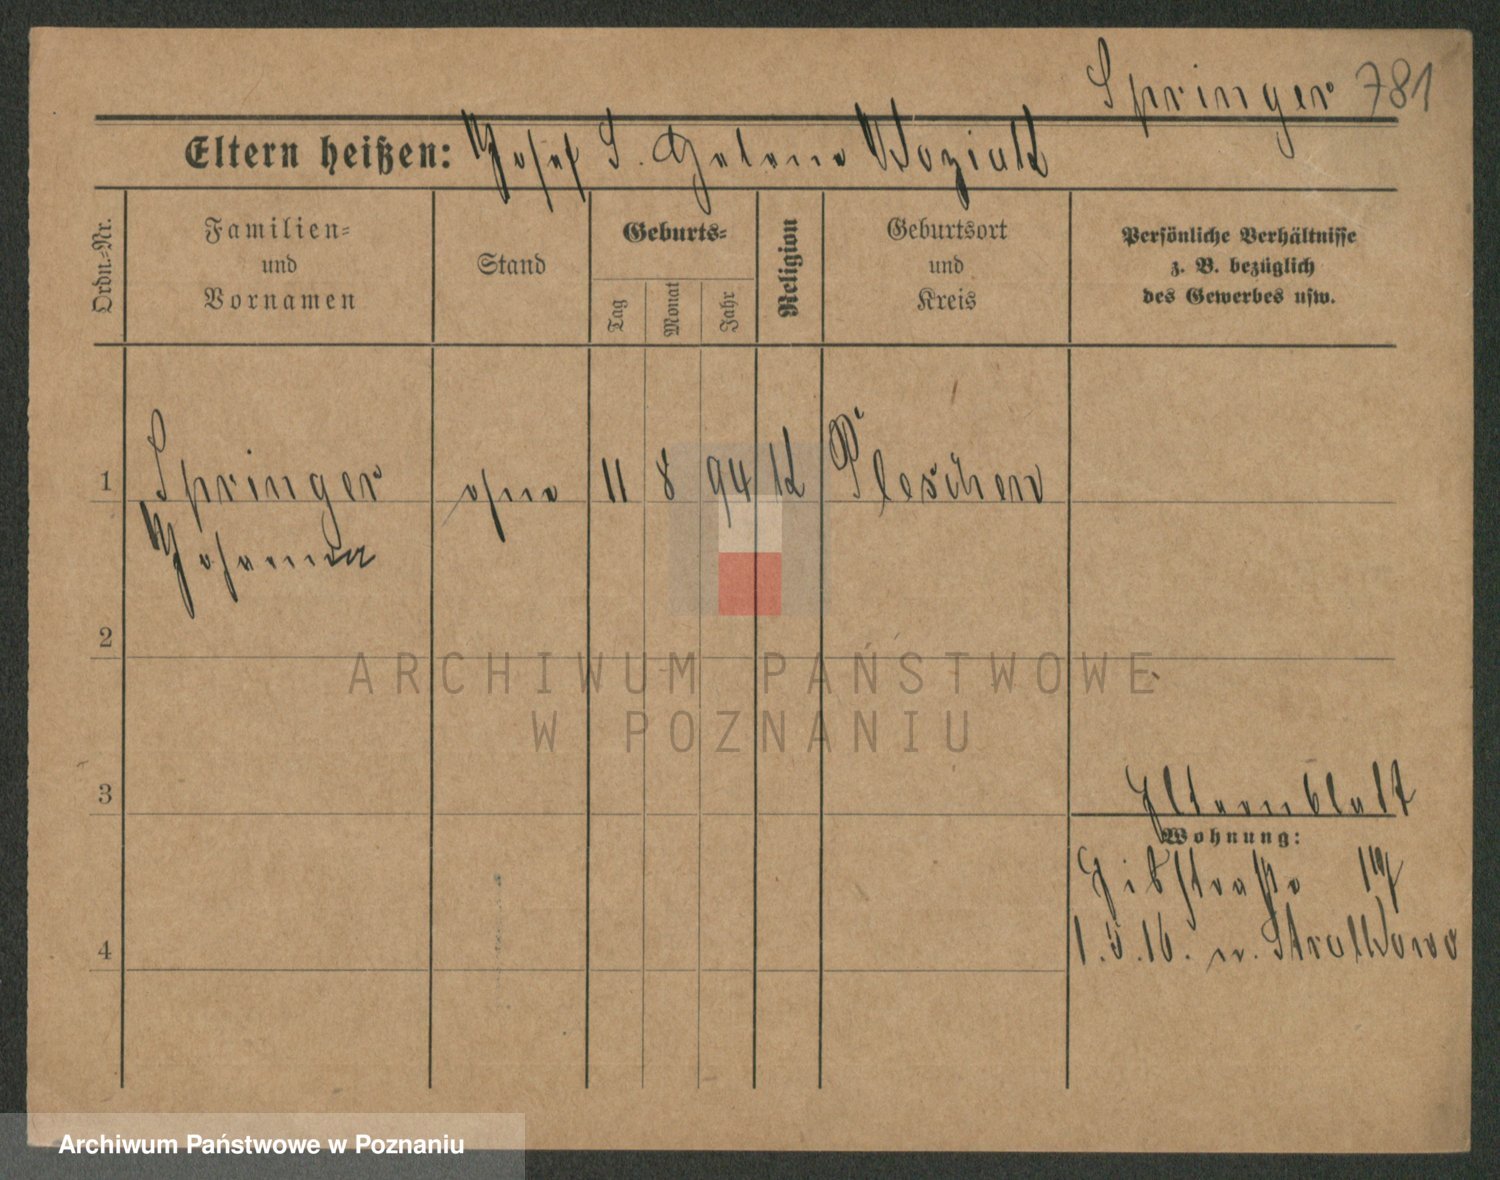 Springer 781
Eltern heißen: Josef S. Helene Woziak
Ordn.-Nr.
Familien-
und
Vornamen
Stand
Geburts-
Tag
Monat
Jahr
Religion
Geburtsort
und
Kreis
Persönliche Verhältnisse
z. B. bezüglich
des Gewerbes usw.
1 Springer ohne 11 8 94 K Pleschen
Johanna
2
3
Elternblatt
Wohnung:
17
1.5.16. n. Stralkowo
4
ARCHIWUM PAŃSTWOWE
W POZNANIU
Archiwum Państwowe w Poznaniu